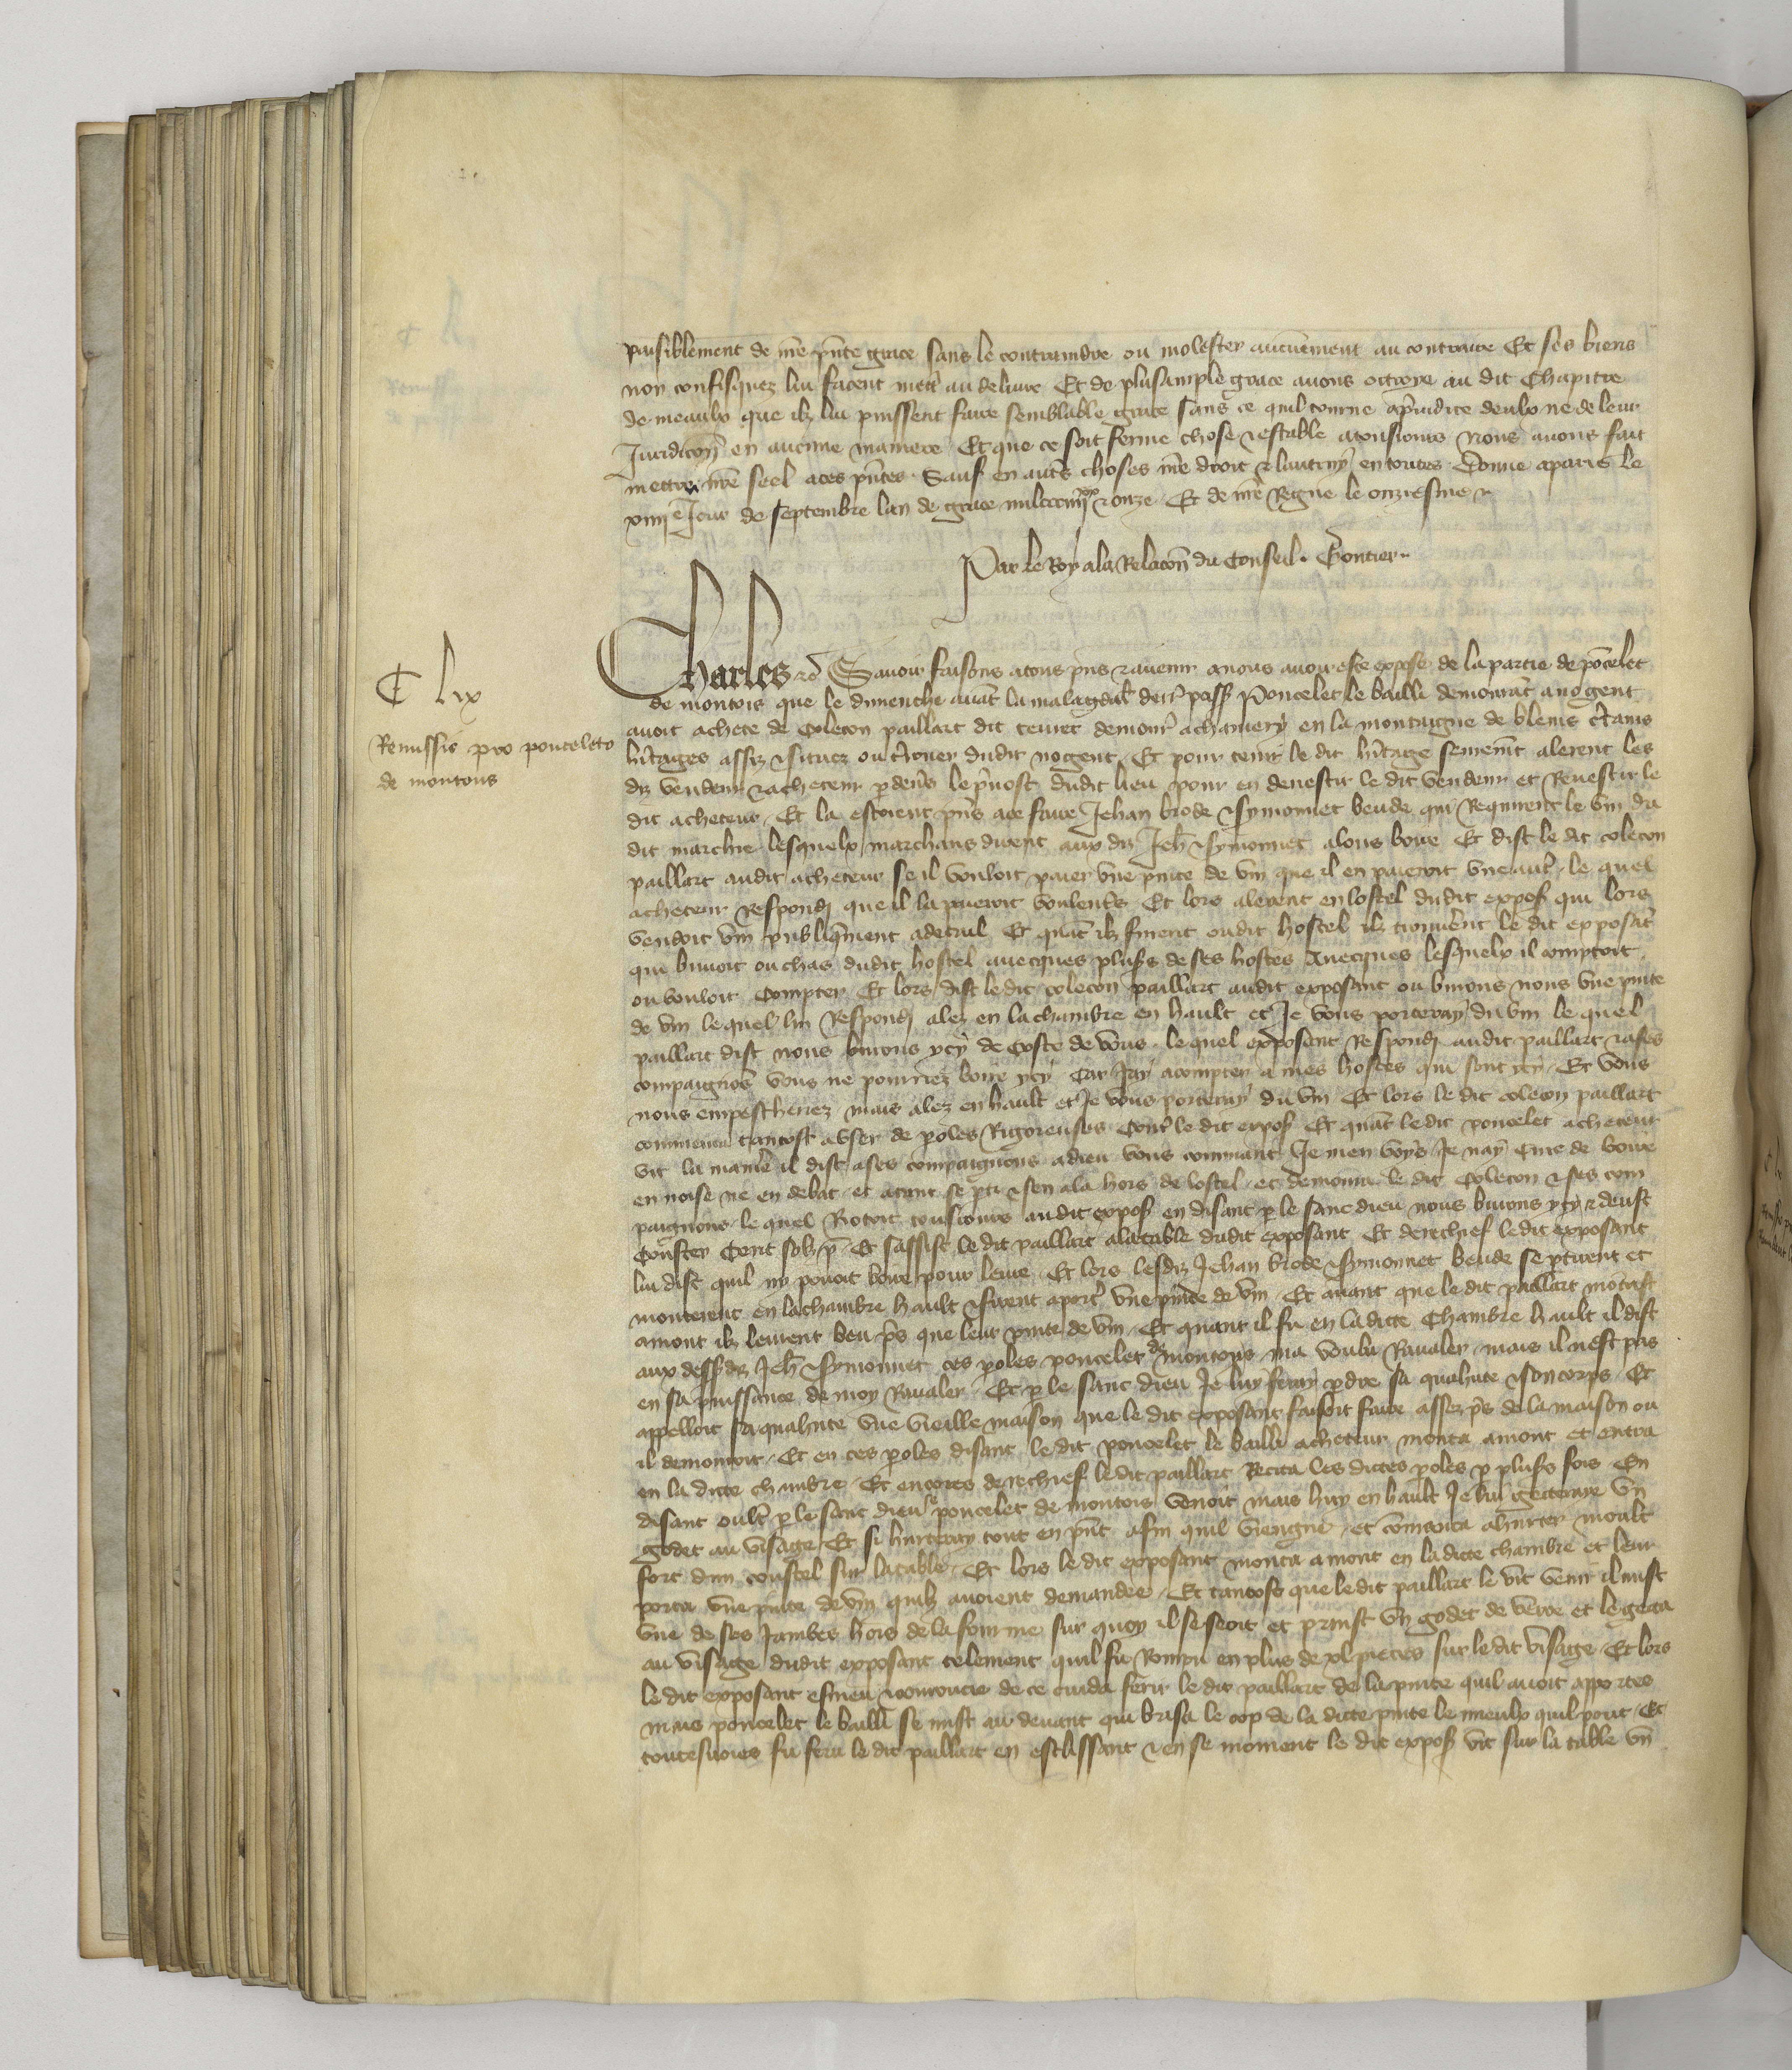 paisiblement de nr̄e pn̄te grace sans le contraindre ou molester aucunement au contraire Et ses biens
non confisquez lui facent mettr̄ au delivre Et de plus ample grace avons octroye au dit Chapitre
de meaulx que ilz lui puissent faire semblable grace sans ce quil tourne apreiudice deulx ne de leur
Juridicōn en aucune maniere Et que ce soit ferme chose & estable a tousiours Nous avons fait
mettre nr̄e seel a ces pn̄tes Sauf en autr̄s choses nr̄e droit & lautruy en toutes Donne a paris le
xiiiie Jour de Septembre lan de grace mil ccc iiiixx & onze Et de nr̄e Regne le onziesme
Par le Roy a la Relacōn du Conseil. Gontier
C lix
Remissio pro ponceleto
de montois
Charles &c Savoir faisons a tous pn̄s & avenir a nous avoir este expose de la partie de pōcelet
de montois que le dimenche avāt la malagdal̄ derr̄ pass̄ Poncelet le bailli demourāt a nogent
avoit achete de Coleçon paillart dit tenret demour̄ a chamery en la montaigne de blems cr̄tains
hr̄itages assiz & situez ou tr̄ouer dudit nogent Et pour tenir le dit hr̄itage alerent les
diz vendeur & acheteur p̱ devr̄s le pr̄vost dudit lieu pour en devestir le dit vendeur et Revestir le
dit acheteur Et la estoient pn̄s a ce faire Jehan brode & Symonnet beude qui Requirent le vin du
dit marchie lesquelx marchans dirent aux diz Jeh̄ & Symonnet alons boire Et dist le dit coleçon
paillart audit acheteur se il vouloit paier une pinte de vin que il en paieroit une autr̄ le quel
acheteur Respondi que il la paieroit voulentr̄s Et lors alerent en lostel dudit expos̄ qui lors
vendoit vin publiq̄ment a detail Et quāt ilz furent oudit hostel ilz trouverēt le dit exposāt
qui buvoit ou chas dudit hostel avecques plus̄s de ses hostes avecques lesquelx il comptoit
ou vouloit compter Et lors dist le dit coleçon paillart audit exposant ou buvrons nous une pinte
de vin le quel lui Respondi alez en la chambre en hault et Je vous porteray du vin le quel
paillart dist nous buvrons ycy de coste de vous le quel exposant Respondi audit paillart & a ses
compaignōs vous ne pourriez boire ycy Car Jay a compter a mes hostes qui sont ycy Et vous
nous empescheriez mais alez en hault et Je vous porteray du vin Et lors le dit coleçon paillart
commenca tantost a user de p̱oles Rigoreuses contr̄ le dit expos̄ Et quāt le dit poncelet acheteur
vit la manier̄e il dist a ses compaignons adieu vous commant Je men voys Je nay cure de boire
en noise ne en debat et atant se p̱ti & sen ala hors de lostel et demoura le dit Coleçon & ses com
paignons le quel Riotoit tousiours audit expos̄ en disant p̱ le sanc dieu nous buvrons ycy & deust
couster Cent solz p̄ Et sassist le dit paillart a la table dudit exposant Et derechief le dit exposant
lui dist quil ny pouoit boire pour leure Et lors lesdiz Jehan brode & Symonnet beude se p̱tirent et
monterent en la chambre hault & firent aportr̄ une pinte de vin Et avant que le dit paillart mōtast
amont ilz leurent beu pr̄s que leur pinte de vin Et quant il fu en la dicte Chambre hault il dist
aux dess̄diz Jeh̄ & Symonnet ces p̱oles poncelet de montois ma voulu Ravaler mais il nest pas
en sa puissance de moy Ravaler Et p̱ le sanc dieu Je luy feray p̱dre sa quahute & son corps Et
appelloit sa quahute une vieille maison que le dit exposant faisoit faire assez pr̄s de la maison ou
il demouroit Et en ces p̱oles disant le dit poncelet le bailli acheteur monta amont et entra
en la dicte chambre Et encores derechief le dit paillart Recita les dictes p̱oles p̱ plus̄s fois En
disant oultr̄ p̱ le sanc dieu se poncelet de montois venoit mais huy en hault Je lui getteroye un
godet au visage Et si hurteray tout en pn̄t afin quil viengne et cōmenca a hurter moult
fort dun coustel sur la table Et lors le dit exposant monta amont en la dicte chambre et leur
porta une pinte de vin quilz avoient demandee Et tantost que le dit paillart le vit venir il mist
une de ses Jambes hors de la fourme sur quoy il se seoit et prinst un godet de verre et le getta
au visage dudit exposant telement quil fu Rompu en plus de xl pieces sur le dit visage Et lors
le dit exposant esmeu & couroucie de ce cuida ferir le dit paillart de la pinte quil avoit apportee
mais poncelet le bailli se mist au devant qui brisa le cop de la dicte pinte le mieulx quil pout Et
toutesvoies fu feru le dit paillart en esclissant & en se moment le dit expos̄ vit sur la table un